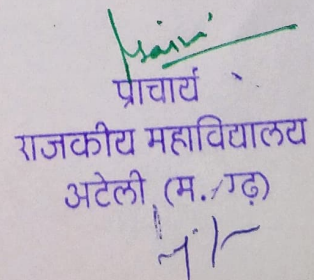 प्राचार्य
राजकीय महाविद्यालय
अटेली (म.गढ़)